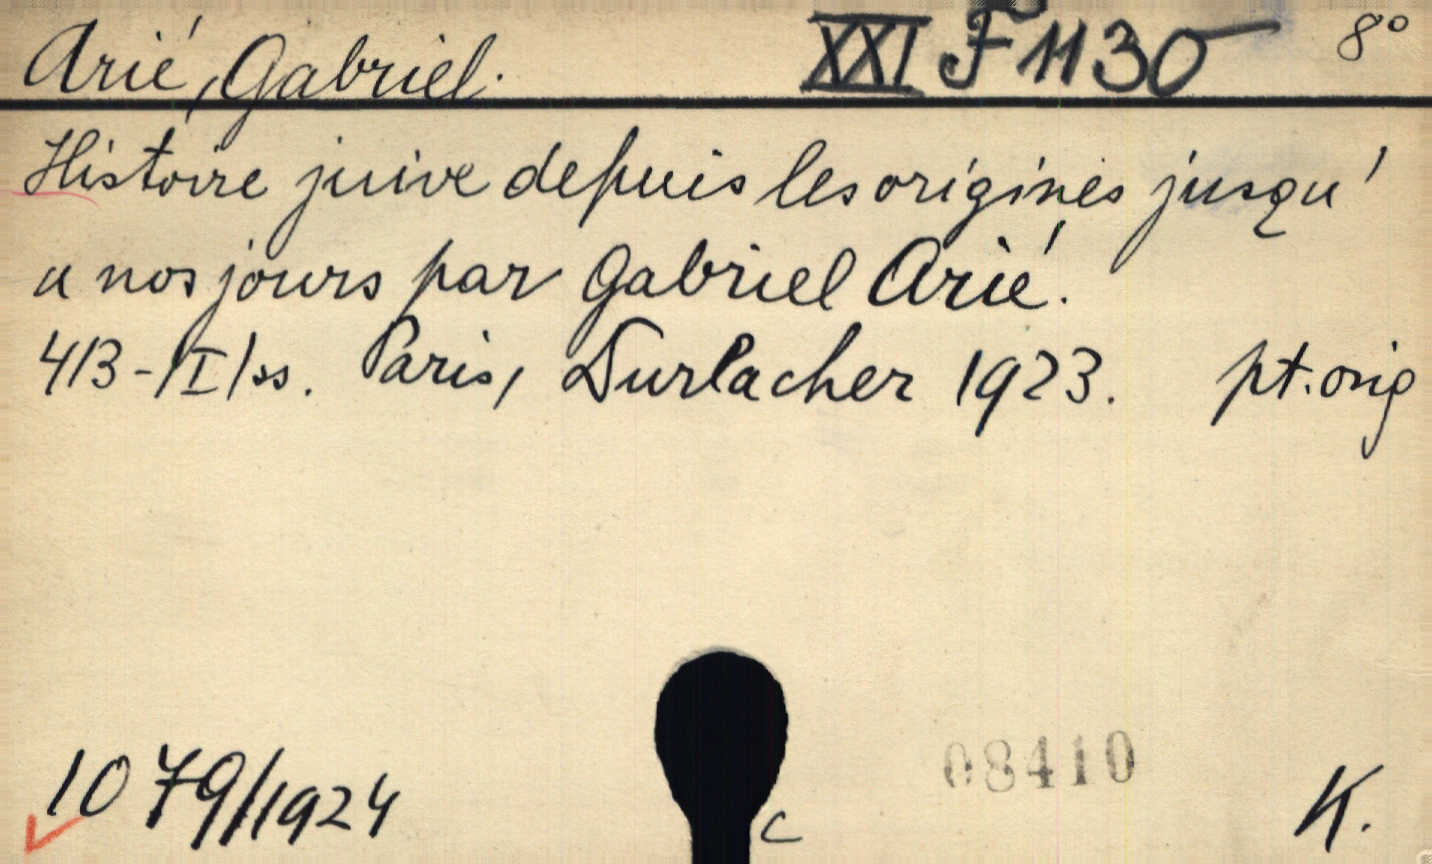 Arié, Gabriel. XXI F 1130 8°
Histoire juive depuis les origines jusqu'
a nos jours par Gabriel Arié.
413-/I/ss. Paris, Durlacher 1923. pt. orig
1079/1924
c
08410
K.